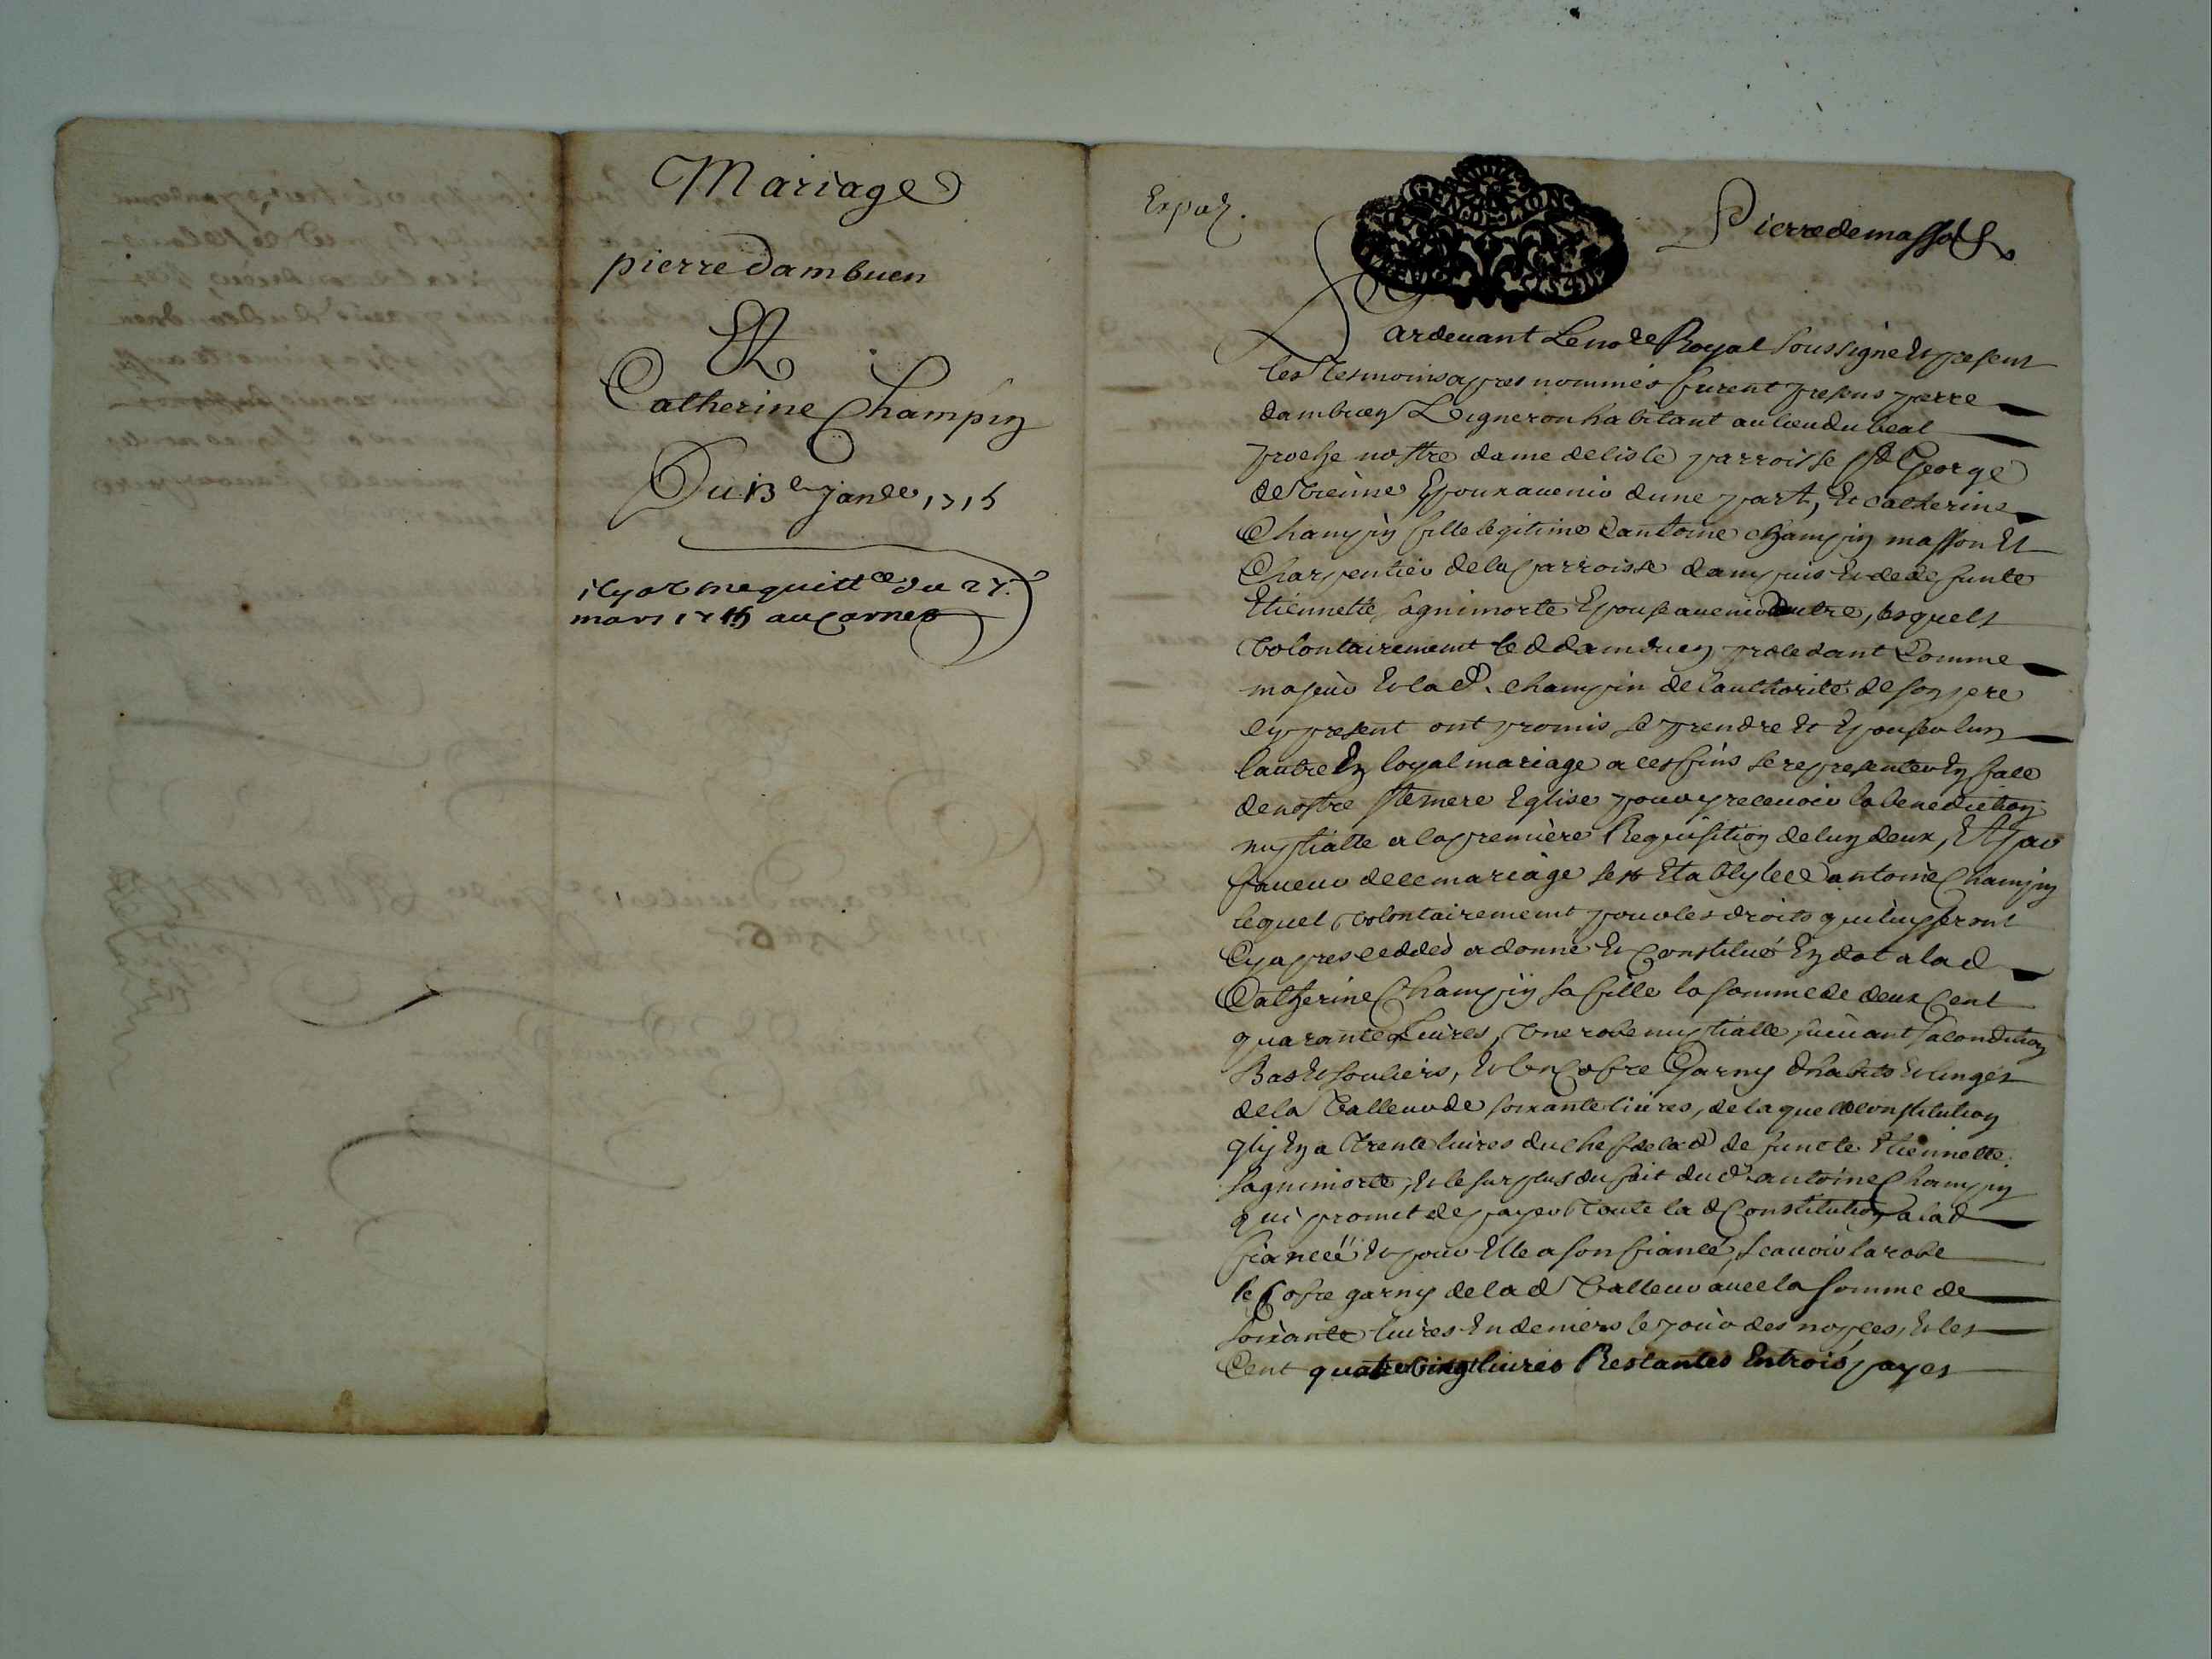 Mariage
pierre Dambuen
Et
Catherine Champin
Du 13e jander 1715
il y a Une quittce du 27
mars 1715 au carnet
Expaz.
Pierre de massols
Pardevant Le nore Royal soussigne Et present
les tesmoins apres nommes furent presens pierre
dambuen Vigneron habitant au lieu du beal
proche nostre dame de lisle parroisse st George
de Vienne Epoux avenir dune part, Et catherine
Champin fille legitime dantoine champin masson Et
Charpentier de la parroisse dampuis Et de defunte
Etiennette Saguimorte Epouse avenir dautre, lesquels
Volontairement led dambuen procedant Comme
majeur Et lad. champin de lauthorité de son pere
cy present ont promis se prendre Et Epouser lun
lautre En loyal mariage a ces fins se representer En face
de nostre ste mere Eglise pour y recevoir la benediction
nuptialle a la premiere Requisition de lun deux, Et par
faveur de ce mariage sest Etably led antoine Champin
lequel volontairement pour les droits qui luy seront
Cy apres ceddes a donné Et Constitué En dot a lad
Catherine Champin sa fille la somme de deux Cent
quarante Livres, Une robe nuptialle suivant sa condition
Bas Et souliers, Et Un Cofre Garny dhabits Et linges
de la Valleur de soixante livres, de laquelle constitution
il y En a trente livres du chef de lad defuncte Etiennette
Saguimorte, Et le surplus du fait dud antoine Champin
qui promet de payer toute lad Constitution a lad
fiancée Et pour Elle a son fiancé, scavoir la robe
le Cofre garny de lad Valleur avec la somme de
soixante livres En deniers le jour des nopces, Et les
Cent quatre vingt livres Restantes En trois payes